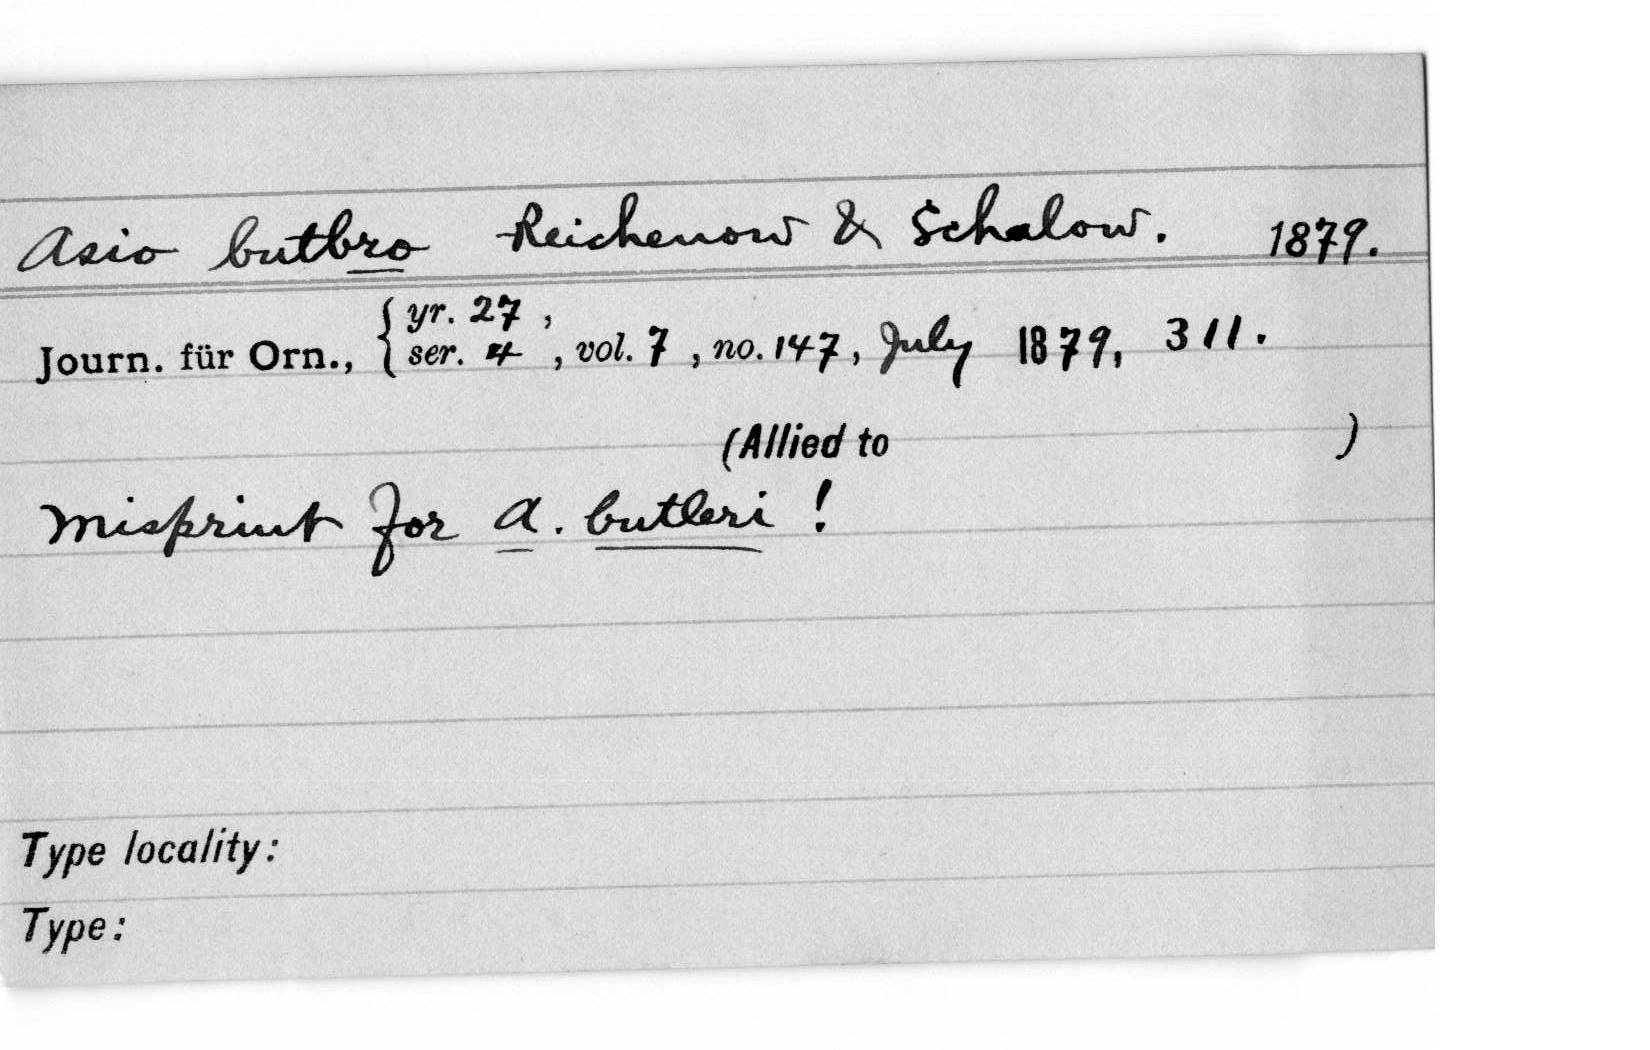 Asio butbro Reichenow & Schalow. 1879.
Journ. für Orn., { yr. 27 ,
ser. 4 , vol. 7 , no. 147, July 1879, 311.
(Allied to )
Misprint for A. butleri !
Type locality:
Type: